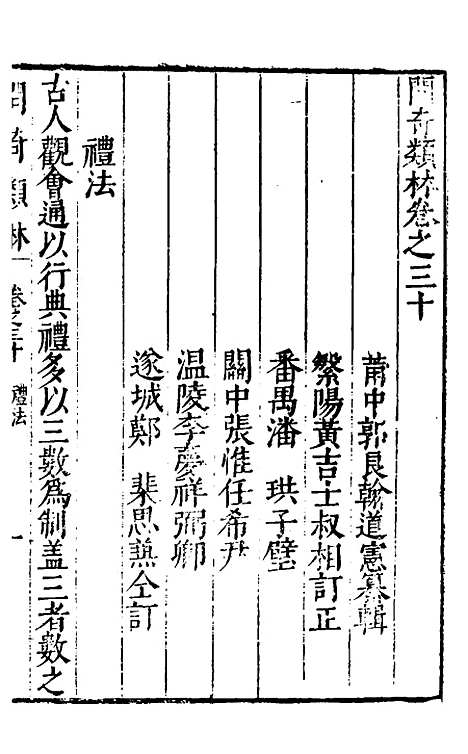 問奇類林卷之三十
莆中郭良翰道憲纂輯
繁陽黃吉士叔相訂正
番禺潘 珙子璧
關中張惟任希尹
温陵李慶祥弼卿
遂城鄭 棐思 仝訂
禮法
古人觀會通以行典禮多以三數爲制盖三者數之
問奇類林 卷之三十 禮法 一